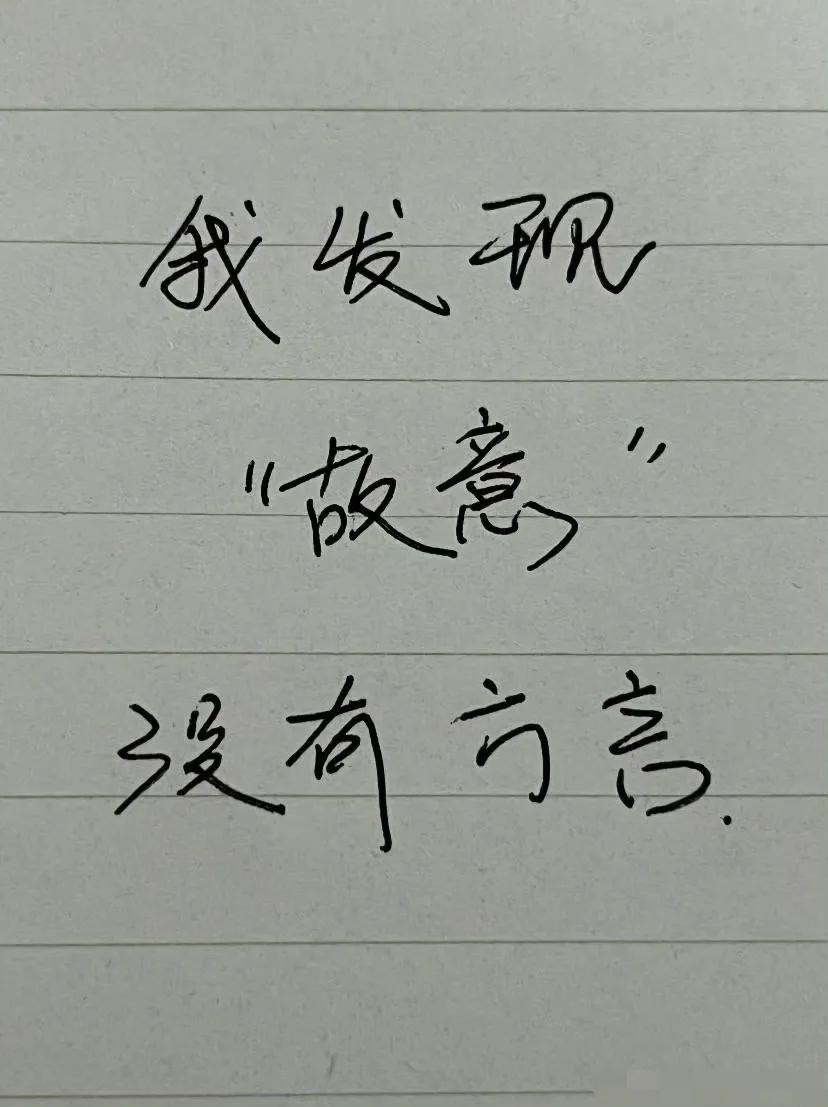 我发现
“故意”
没有方言.